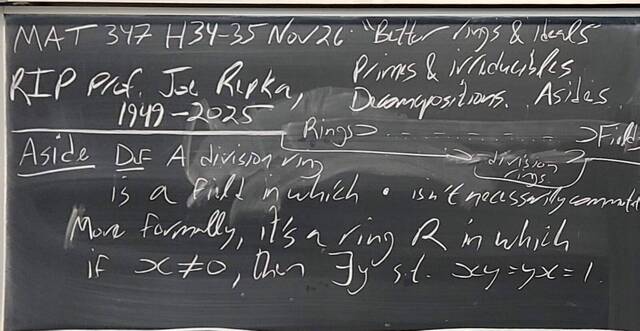 MAT 347 H34-35 Nov 26 "Better rings & ideals"
RIP Prof. Joe Repka,
1949-2025
Primes & irreducibles
Decompositions. Asides
Rings ⊃ - - - - - - - ⊃ Field
division
rings
Aside Def A division ring
is a field in which • isn't necessarily commut
More formally, it's a ring R in which
if x≠0, then ∃y s.t. xy=yx=1.